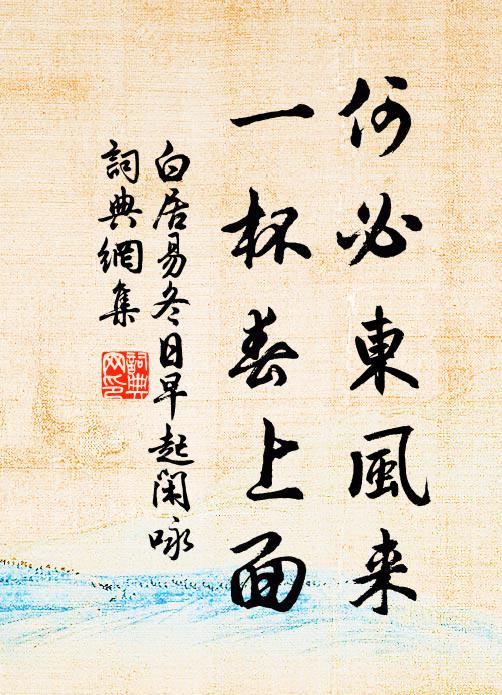 何必東風来
一杯春上面
白居易冬日早起閑咏
詞典網集
詞典网印